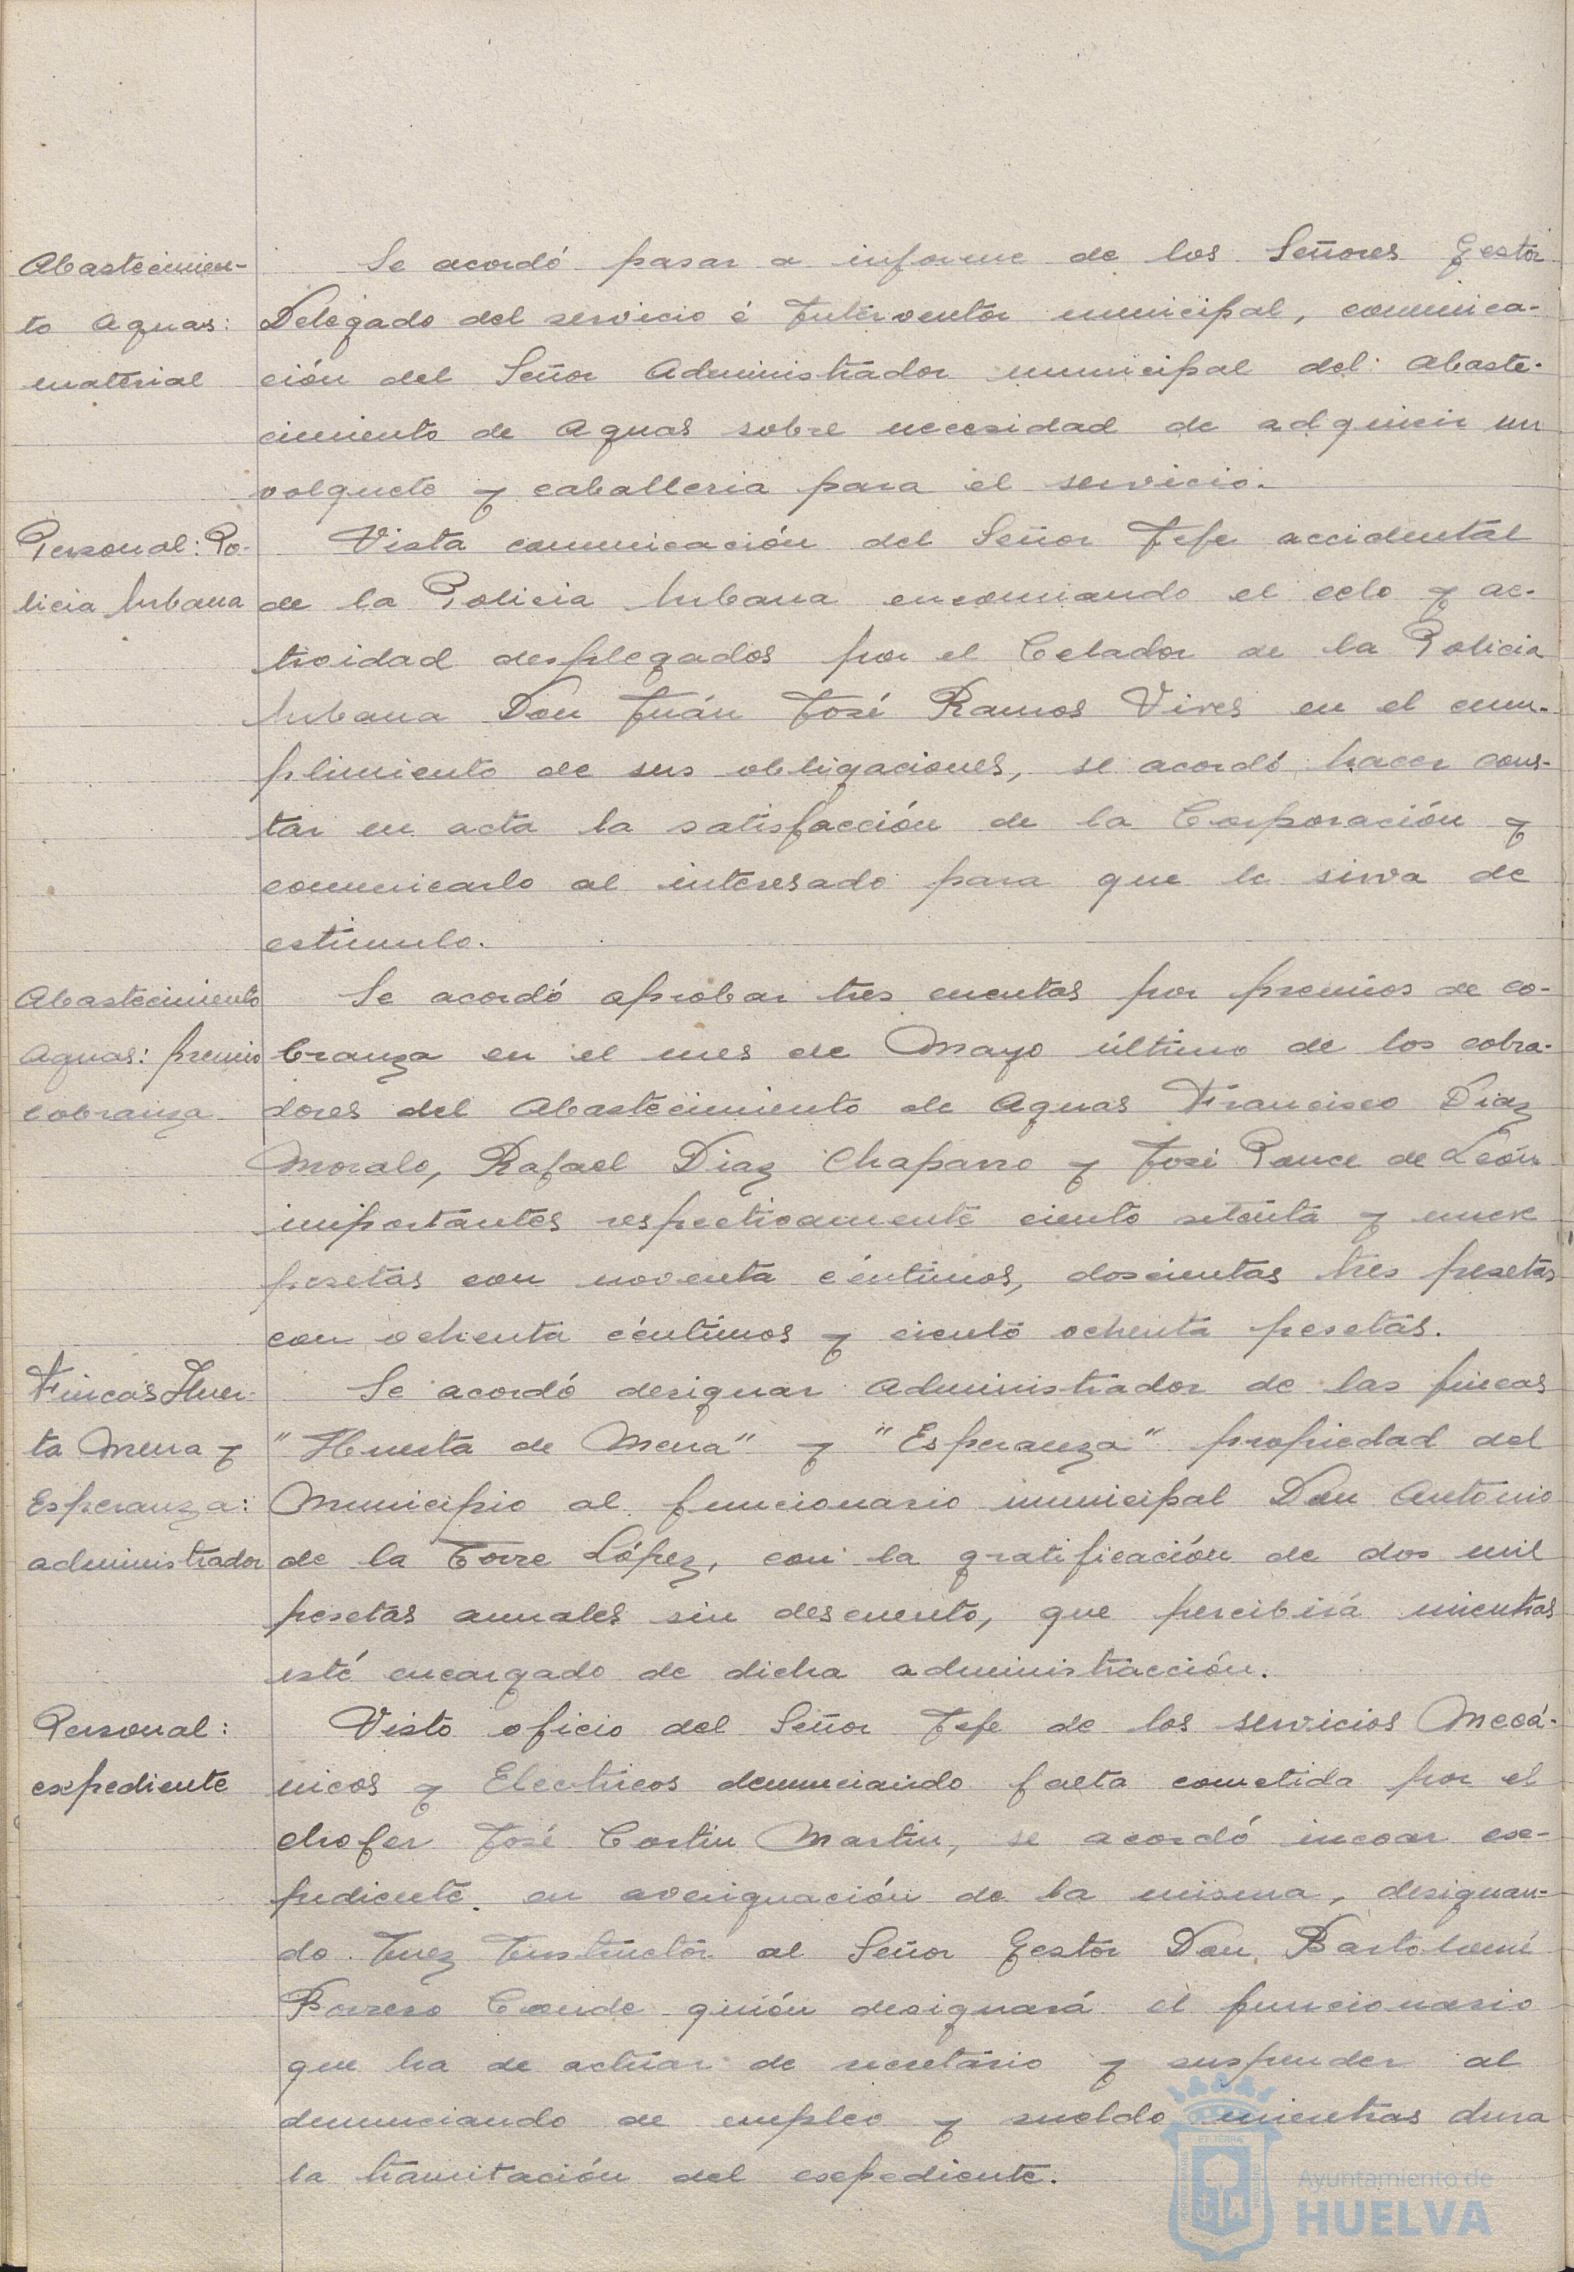 Abastecimien-
to Aguas:
material
Se acordó pasar a informe de los Señores Gestor
Delegado del servicio é Interventor municipal, comunica-
ción del Señor Administrador municipal del Abaste-
cimiento de Aguas sobre necesidad de adquirir un
volquete y caballeria para el servicio.
Personal: Po-
licia Urbana
Vista comunicación del Señor Jefe accidental
de la Policia Urbana encomiando el celo y ac-
tividad desplegados por el Celador de la Policia
Urbana Don Juán José Ramos Vives en el cum-
plimiento de sus obligaciones, se acordó hacer cons-
tar en acta la satisfacción de la Corporación y
comunicarlo al interesado para que le sirva de
estimulo.
Abastecimiento
Aguas: premio
cobranza
Se acordó aprobar tres cuentas por premios de co-
branza en el mes de Mayo último de los cobra-
dores del Abastecimiento de Aguas Francisco Diaz
Moralo, Rafael Diaz Chaparro y José Ponce de León
importantes respectivamente ciento setenta y nueve
pesetas con noventa céntimos, doscientas tres pesetas
con ochenta céntimos y ciento ochenta pesetas.
Fincas Huer-
ta Mena y
Esperanza:
administrador
Se acordó designar Administrador de las fincas
"Huerta de Mena" y "Esperanza" propiedad del
Municipio al funcionario municipal Don Antonio
de la Torre López, con la gratificación de dos mil
pesetas anuales sin descuento, que percibirá mientras
esté encargado de dicha administracción.
Personal:
expediente
Visto oficio del Señor Jefe de los servicios Mecá-
nicos y Electricos denunciando falta cometida por el
chofer José Cortin Martin, se acordó incoar ex-
pediente en averiguación de la misma, designan-
do Juez Instructor al Señor Gestor Don Bartolomé
Borrero Conde quién designará el funcionario
que ha de actuar de secretario y suspender al
denunciando de empleo y sueldo mientras dura
la tramitación del expediente.
Ayuntamiento de
HUELVA